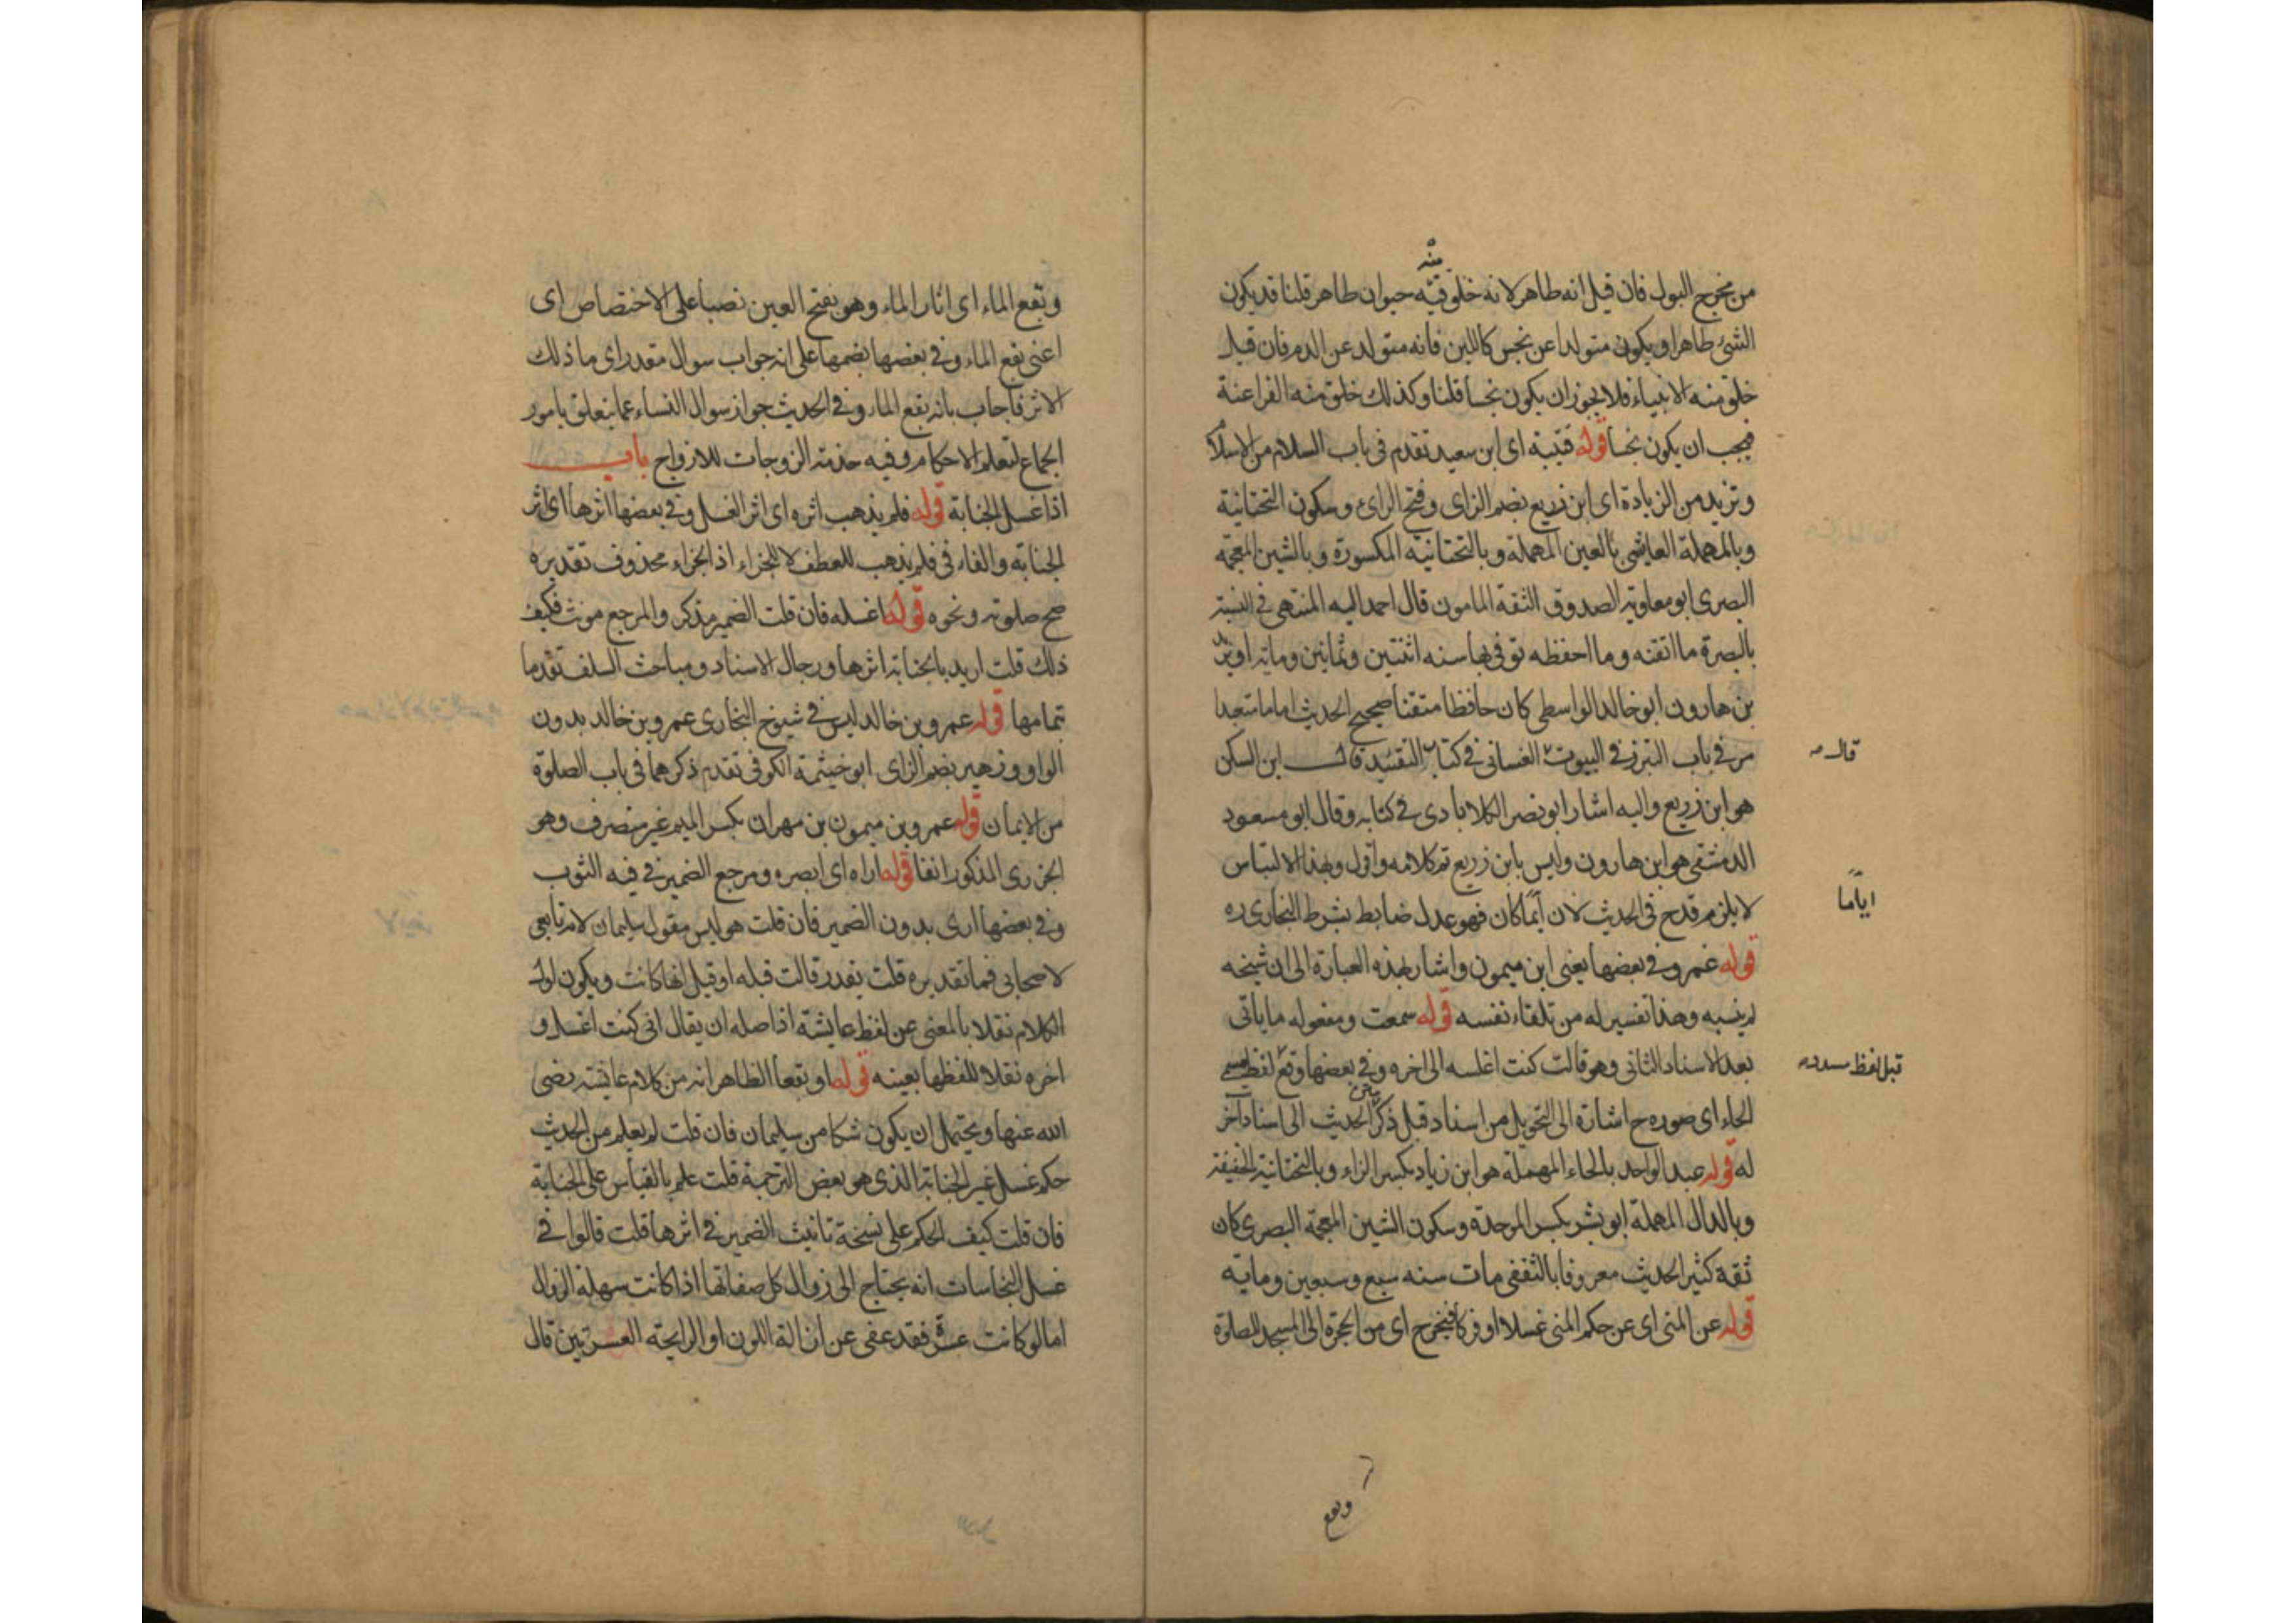 من مخرج البول فان قيل انه طاهر لانه خلق منه حيوان طاهر قلنا قد يكون
الشئ طاهرا ويكون متولدا عن نجس كاللبن فانه متولد عن الدم فان قيل
خلق منه الانبياء فلا يجوز ان يكون نجسا قلنا وكذلك خلق منه الفراعنة
فيجب ان يكون نجسا قوله قتيبة اى ابن سعيد تقدم فى باب السلام من الاسلام
وتزيد من الزيادة اى ابن زريع بضم الزاى وفتح الرائ وسكون التحتانية
وبالمهملة العايشى بالعين المهملة وبالتحتانيه المكسورة وبالشين المعجمه
البصرى ابو معاويه الصدوق الثقة المامون قال احمد اليه المنتهى فى التثبت
بالبصرة ما اتقنه وما احفظه توفى بها سنه اثنتين وثمانين ومايه او يزيد
بن هارون ابو خالد الواسطى كان حافظا متقنا صحيح الحديث اماما متعبدا
مر فى باب التبرز فى البيوت الغسانى فى كتاب التقييد قال ابن السكن
قال
هو ابن زريع واليه اشار ابو نصر الكلابادى فى كتابه وقال ابو مسعود
الدمشقى هو ابن هارون وليس بابن زريع تم كلامه واقول وبهذا الالتباس
لا يلزم قدح فى الحديث لان أيّما كان فهو عدل ضابط بشرط البخارى ره
اياما
قوله عمرو فى بعضها يعنى ابن ميمون واشار بهذه العبارة الى ان شيخه
لم ينسبه وهذا تفسير له من تلقاء نفسه قوله سمعت ومفعوله ما ياتى
بعد الاسناد الثانى وهو قالت كنت اغلسه الى اخره وفى بعضها وقع لفظ
قبل لفظ مسدد
الحاء اى صوره ح اشارة الى التحويل من اسناد قبل ذكر الحديث الى اسناد آخر
له قوله عبد الواحد بالحاء المهملة هو ابن زياد بكسر الزاء وبالتحتانية الخفيفة
وبالدال المهملة ابو بشر بكسر الموحدة وسكون الشين المعجمة البصرى كان
ثقة كثير الحديث معروفا بالثقفى مات سنه سبع وسبعين ومايه
قوله عن المنى اى عن حكم المنى غسلا او فركا فيخرج اى من الحجرة الى المسجد للصلوة
وبقع
وبقع الماء اى اثار الماء وهو بفتح العين نصبا على الاختصاص اى
اعنى بقع الماء وفى بعضها بضمها على انه جواب سوال مقدر اى ما ذلك
الاثر فاجاب بانه بقع الماء وفى الحديث جواز سوال النساء عما يتعلق بامور
الجماع لتعلم الاحكام وفيه خدمة الزوجات للازواج باب
اذا غسل الجنابة قوله فلم يذهب اثره اى اثر الغسل وفى بعضها اثرها اى اثر
الجنابه والفاء فى فلم يذهب للعطف لا للجزاء اذ الجزاء محذوف تقديره
صح صلوته ونحوه قوله اغسله فان قلت الضمير مذكر والمرجع مونث فكيف
ذلك قلت اريد بالجنابة اثرها ورجال الاسناد ومباحث السلف تقدما
تمامها قوله عمرو بن خالد ليس فى شيوخ البخارى عمرو بن خالد بدون
الواو وزهير بضم الزاى ابو خيثمة الكوفى تقدم ذكرهما فى باب الصلوة
من الايمان قوله عمرو بن ميمون بن مهران بكسر الميم غير منصرف وهو
الجزرى المذكور انفا قوله اراه اى ابصره ومرجع الضمير فى فيه الثوب
وفى بعضها ارى بدون الضمير فان قلت هو ليس مقول سليمان لانه تابعى
لا صحابى فما تقديره قلت يقدر قالت قبله او قيل انها كانت ويكون اول
الكلام نقلا بالمعنى عن لفظ عايشة اذ اصله ان يقال انى كنت اغسل و
اخره نقلا للفظها بعينه قوله او بقعا الظاهر انه من كلام عايشة رضى
الله عنها ويحتمل ان يكون شكا من سليمان فان قلت لم يعلم من الحديث
حكم غسل غير الجنابة الذى هو بعض الترجمة قلت علم بالقياس على الجنابة
فان قلت كيف الحكم على نسخة تانيث الضمير فى اثرها قلت قالوا فى
غسل النجاسات انه يحتاج الى زوال كل صفاتها اذا كانت سهلة الزوال
اما لو كانت عسرة فقد عفى عن ازالة اللون او الرايحة العسرتين قال